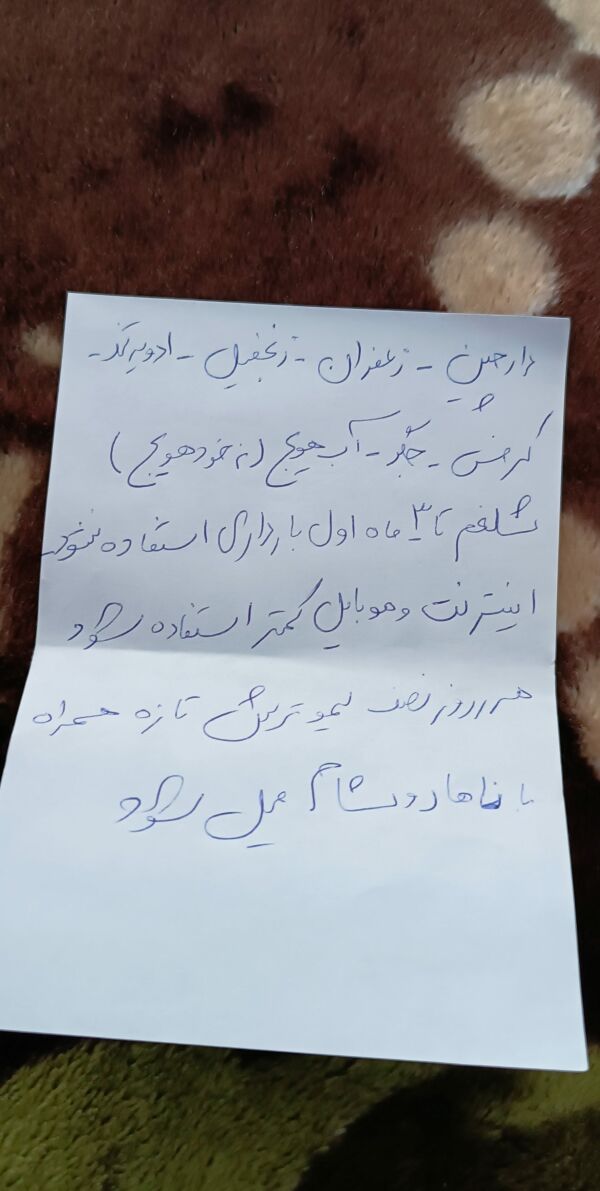 دارچین - زعفران - زنجفیل - ادویه تند -
کرفس - جگر - آب هویج (نه خود هویج)
شلغم تا ۳ ماه اول بارداری استفاده نشود
اینترنت و موبایل کمتر استفاده شود
هر روز نصف لیمو ترش تازه همراه
با ناهار و شام میل شود